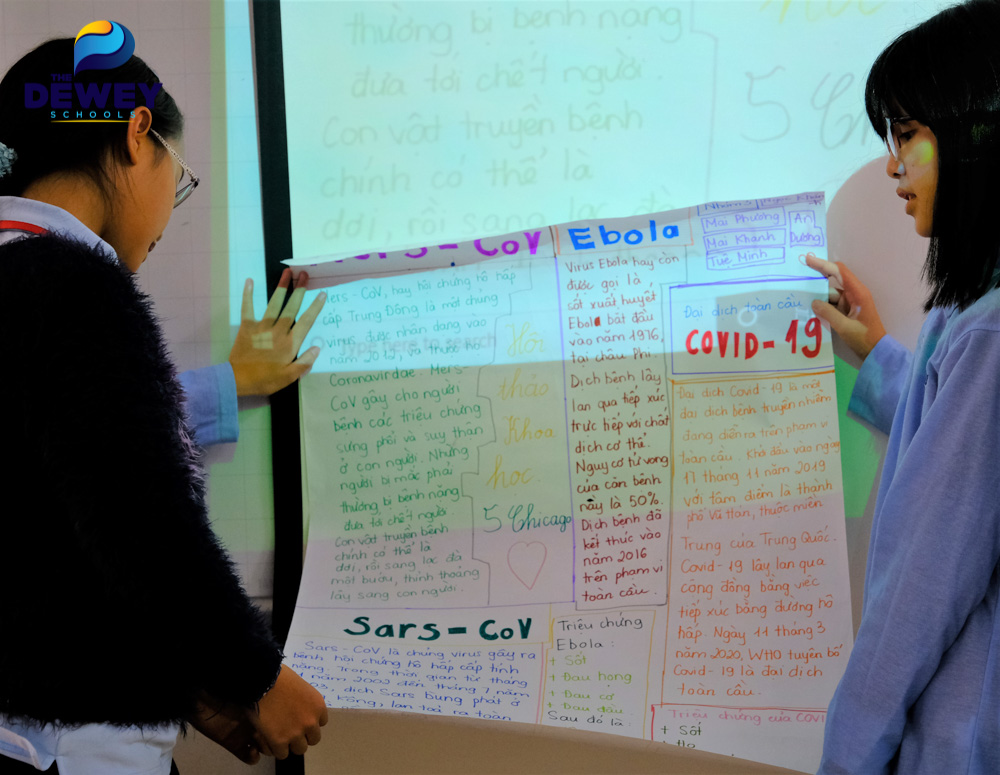 THE
DEWEY
SCHOOLS
thường bị bệnh nặng
đưa tới chết người.
Con vật truyền bệnh
chính có thể là
dơi, rồi sang lạc đà
5 Ch
Mers - CoV
Mers - CoV, hay hội chứng hô hấp
cấp Trung Đông là một chủng
virus được nhận dạng vào
năm 2012, và thuộc họ
Coronavirdae. Mers-
CoV gây cho người
bệnh các triệu chứng
sưng phổi và suy thận
ở con người. Những
người bị mắc phải
thường bị bệnh nặng
đưa tới chết người.
Con vật truyền bệnh
chính có thể là
dơi, rồi sang lạc đà
một bướu, thỉnh thoảng
lây sang con người.
Type here to search
Hội
thảo
Khoa
học.
5 Chicago
Ebola
Virus Ebola hay còn
được gọi là
sốt xuất huyết
Ebola bắt đầu
vào năm 1976,
tại châu Phi.
Dịch bệnh lây
lan qua tiếp xúc
trực tiếp với chất
dịch cơ thể.
Nguy cơ tử vong
của căn bệnh
này là 50%.
Dịch bệnh đã
kết thúc vào
năm 2016
trên phạm vi
toàn cầu.
Mai Phương
Mai Khánh
Tuệ Minh
An
Dương
Đại dịch toàn cầu
COVID-19
Đại dịch Covid-19 là một
đại dịch bệnh truyền nhiễm
đang diễn ra trên phạm vi
toàn cầu. Khở đầu vào ngày
17 tháng 11 năm 2019
với tâm điểm là thành
phố Vũ Hán, thuộc miền
Trung của Trung Quốc.
Covid-19 lây lan qua
cộng đồng bằng việc
tiếp xúc bằng đường hô
hấp. Ngày 11 tháng 3
năm 2020, WHO tuyên bố
Covid-19 là đại dịch
toàn cầu.
Sars - CoV
Sars-CoV là chủng virus gây ra
bệnh hội chứng hô hấp cấp tính
nặng. Trong thời gian từ tháng
năm 2002 đến tháng 7 năm
dịch Sars bùng phát ở
Kông, lan toả ra toàn
Triệu chứng
Ebola:
+ Sốt
+ Đau họng
+ Đau cơ
+ Đau đầu
Sau đó là
Triệu chứng của COVI
+ Sốt
+ Ho